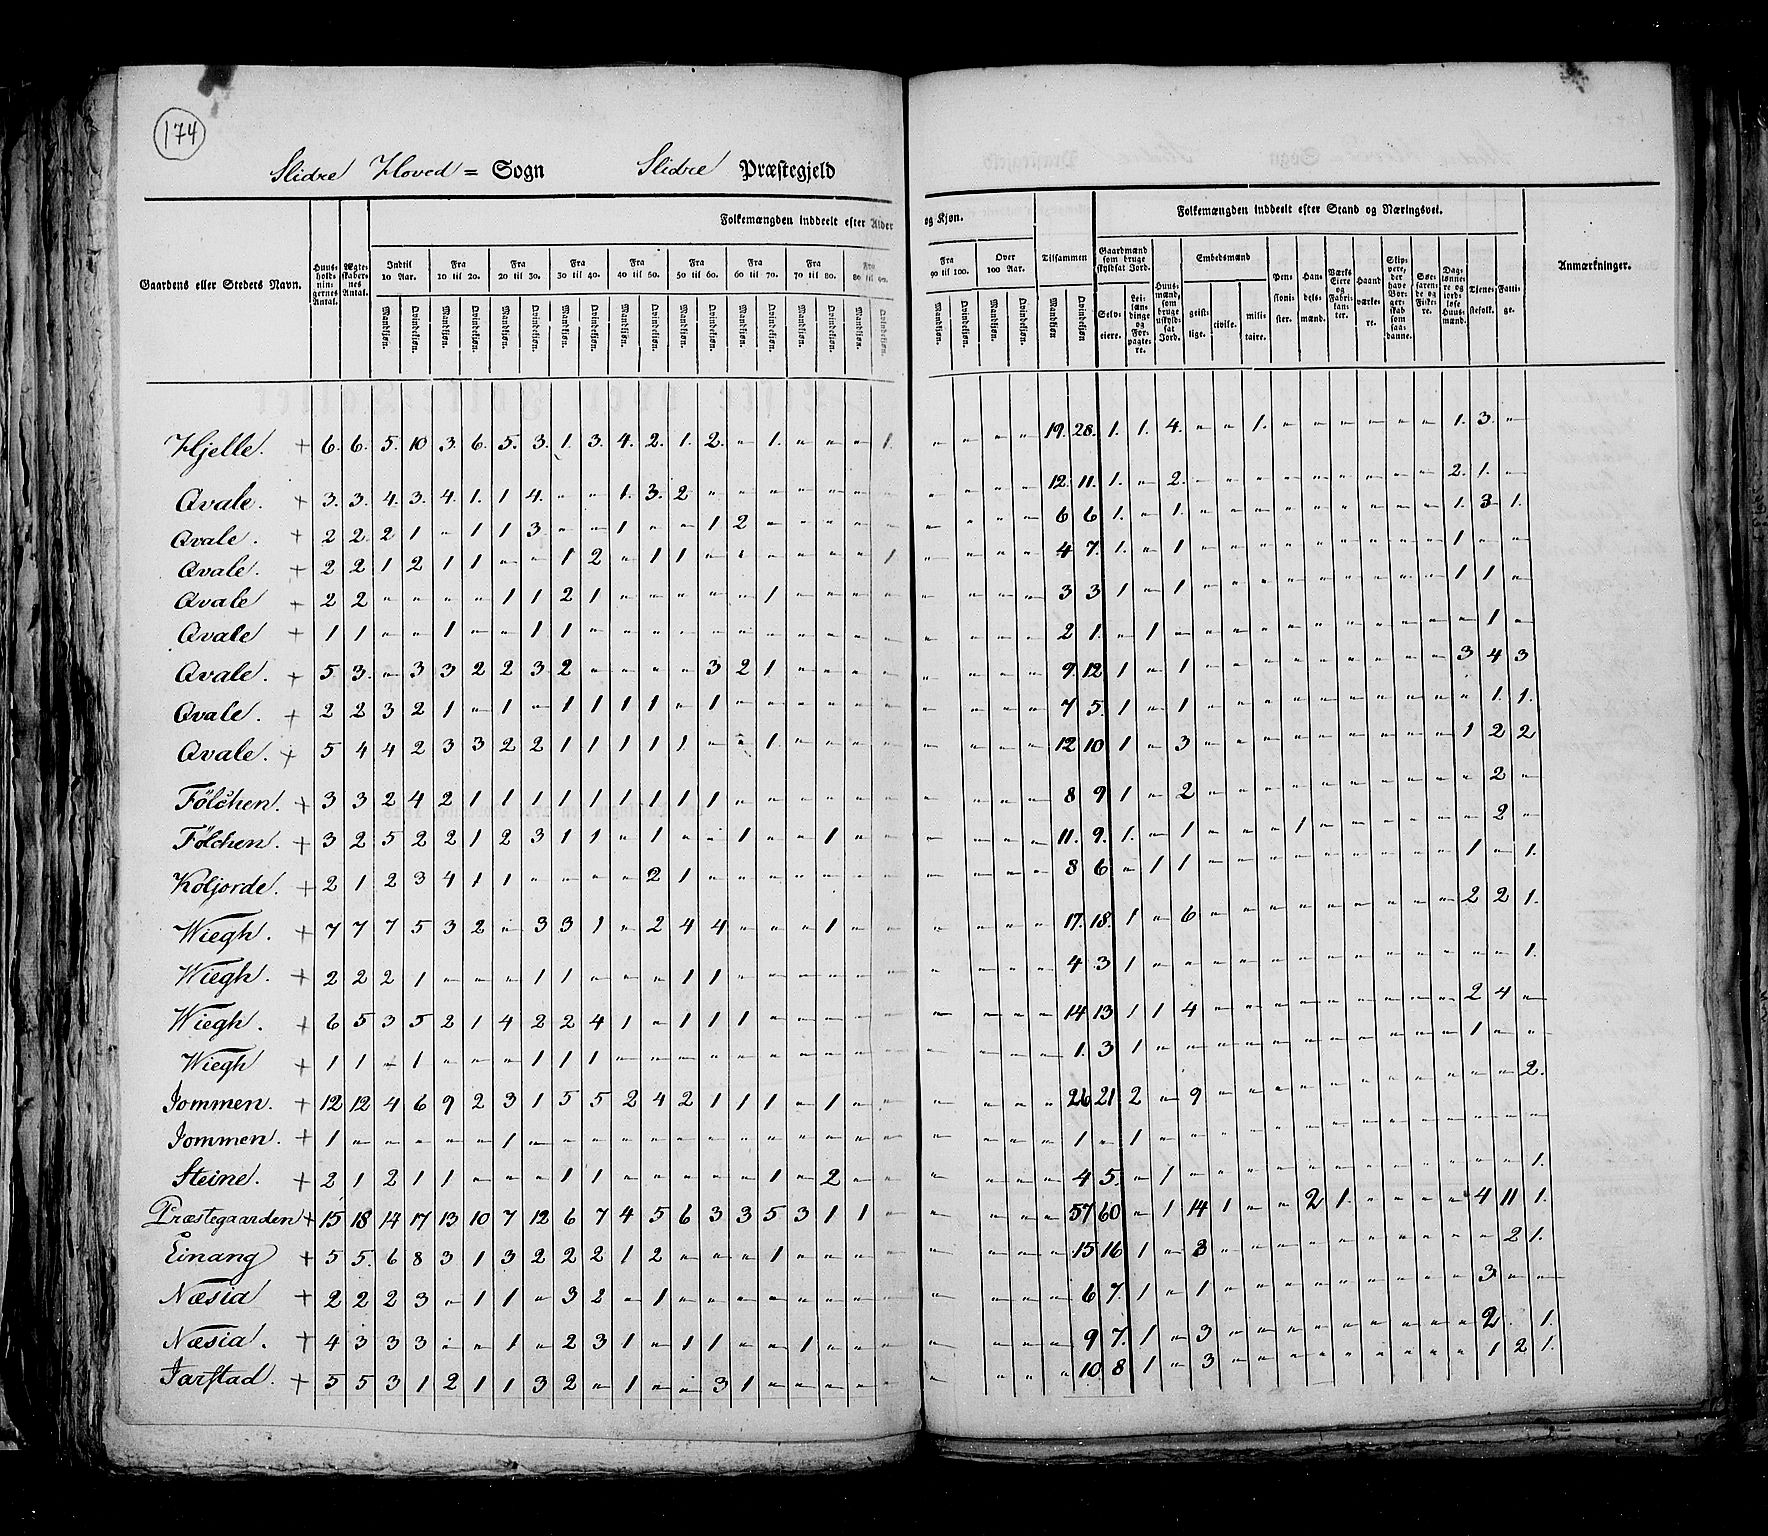 174
Slidre Hoved = Sogn Slidre Præstegjeld
Gaardens eller Stedets Navn. Huusholdningernes Antal. Ægteskabernes Antal. Folkemængden inddeelt efter Alder og Kjøn. Tilsammen Folkemængden inddeelt efter Stand og Næringsvei. Anmærkninger.
Indtil 10 Aar. Fra 10 til 20. Fra 20 til 30. Fra 30 til 40. Fra 40 til 50. Fra 50 til 60. Fra 60 til 70. Fra 70 til 80. Fra 80 til 90. Fra 90 til 100. Over 100 Aar.
Gaardmænd som bruge skyldsat Jord. Huusmænd, som bruge uskyldsat Jord. Embedsmænd Pensionister. Handelsmænd. Værks Eiere og Fabrikanter. Haandværkere. Skippere, der have Borgerskab som saadanne. Søefarende og Fiskere. Dagslønnere og jordløse Huusmænd. Tjenestefolk. Fattige.
Mandkjøn. Qvindekjøn. Mandkjøn. Qvindekjøn. Mandkjøn. Qvindekjøn. Mandkjøn. Qvindekjøn. Mandkjøn. Qvindekjøn. Mandkjøn. Qvindekjøn. Mandkjøn. Qvindekjøn. Mandkjøn. Qvindekjøn. Mandkjøn. Qvindekjøn. Mandkjøn. Qvindekjøn. Mandkjøn. Qvindekjøn. Mandkjøn Qvindekjøn. Selveiere. Leilændinge og Forpagtere. geistlige. civile. militaire.
Hjelle. + 6. 6. 5. 10 3. 6. 5. 3. 1. 3. 4. 2. 1. 2. " 1. " " " 1. " " " " 19. 28. 1. 1. 4. " " 1. " " " " " " 1. 3. "
Qvale. + 3. 3. 4. 3. 4. 1. 1 4. " " 1. 3. 2 " " " " " " " " " " " 12. 11. 1. " 2. " " " " " " " " " 2. 1. "
Qvale. + 2 2 2 1 " 1 1 3 " " 1 " " 1 2 " " " " " " " " " 6 6 1. " 1 " " " " " " " " " 1. 3 1.
Qvale. + 2 2 1 2 1 1 " " 1 2 " 1 1 " " " " " " 1 " " " " 4 7. 1. " 1 " " " " " " " " " 1 " "
Qvale + 2 2 " " " " 1 1 2 1 " " " " " 1 " " " " " " " " 3 3 1 " 1 " " " " " " " " " 1 1 "
Qvale + 1 1 " " 1 " 1 1 " " " " " " " " " " " " " " " " 2 1. " 1 " " " " " " " " " " " 1 "
Qvale. + 5 3. " 3 3 2 2 3 2 " " " " 3 2 1 " " " " " " " " 9. 12 1 " 1 " " " " " " " " " 3 4 3
Qvale. + 2 2 3 2 1 " 1 " 1 1 1 1 " 1 " " " " " " " " " " 7 5. 1 " 1 " " " " " " " " " " 1. 1.
Qvale. + 5 4 4 2 3 3 2 2 1 1 1 1 1 " " 1 " " " " " " " " 12 10 1 " 3 " " " " " " " " " 1 2 2
Fölchen. + 3 3 2 4 2 1 1 1 1 1 1 1 1 1 " " " " " " " " " " 8 9 1 " 2 " " " " " " " " " " 2 "
Fölchen. + 3 2 5 2 2 1 2 3 1 1 " 1 " " 1 " " 1 " " " " " " 11. 9. 1. " 1 " " " 1 " " " " " " 2 "
Köljorde. + 2 1 2 3 4 1 1 " " " " 2 1 " " " " " " " " " " " 8 6 " 1 1 " " " " " " " " " 1 " 1.
Wiegh. + 7 7 7 5 3 2 " 3 3 1 " 2 4 4 " " " 1 " " " " " " 17. 18. 1 " 6 " " " " " " " " " 2 2 1.
Wiegh. + 2 2 2 1 " " " 1 1 " " " 1 1 " " " " " " " " " " 4 3 1 " " " " " " " " " " " " " 1.
Wiegh. + 6 5 3 5 2 1 4 2 2 4 1 " 1 1 1 " " " " " " " " " 14 13 1 1 4 " " " " " " " " " 2 4 "
Wiegh + 1 1 " 1 " " " 1 1 1 " " " " " " " " " " " " " " 1. 3 1 " " " " " " " " " " " 1 " "
Jommen. + 12 12 4 6 9 2 3 1 5 5 2 4 2 1 1 1 " 1 " " " " " " 26 21 2 " 9 " " " " " " " " " " " 2.
Jommen. + 1 " " " " " 1 " " " " " " " " " " " " " " " " " 1 " 1 " " " " " " " " " " " " " "
Steine. + 2 1 2 1 1 " " " 1 1 " " " " " 1 " 2 " " " " " " 4 5. " 1 " " " " " " " " " " " " 1.
Præstegaarden + 15 18 14 17 13 10 7 12 6 7 4 5 6 3 3 5 3 1 1 " " " " " 57 60 " 1 14 1 " " 2 1. " " " " 4 11 1.
Einang + 5 5. 6 8 3 1 3 2 2 2 1 2 " " " 1 " " " " " " " " 15 16 1 " 3 " " " " " " " " " " 2 1.
Næsia + 2 2 2 3 " 1 1 " 3 2 " 1 " " " " " " " " " " " " 6 7. 1 " 1 " " " " " " " " " 3 " "
Næsia. + 4 3 3 3 " " 1 " 2 3 1 " 1 1 " " 1 " " " " " " " 9 7. 1 " 3 " " " " " " " " " 2. 1.
Jarstad. + 5 5 3 1 2 1 1 3 2 " 1 " " 3 1 " " " " " " " " " 10 8 1 " 3 " " " " " " " " " 1 2 1.